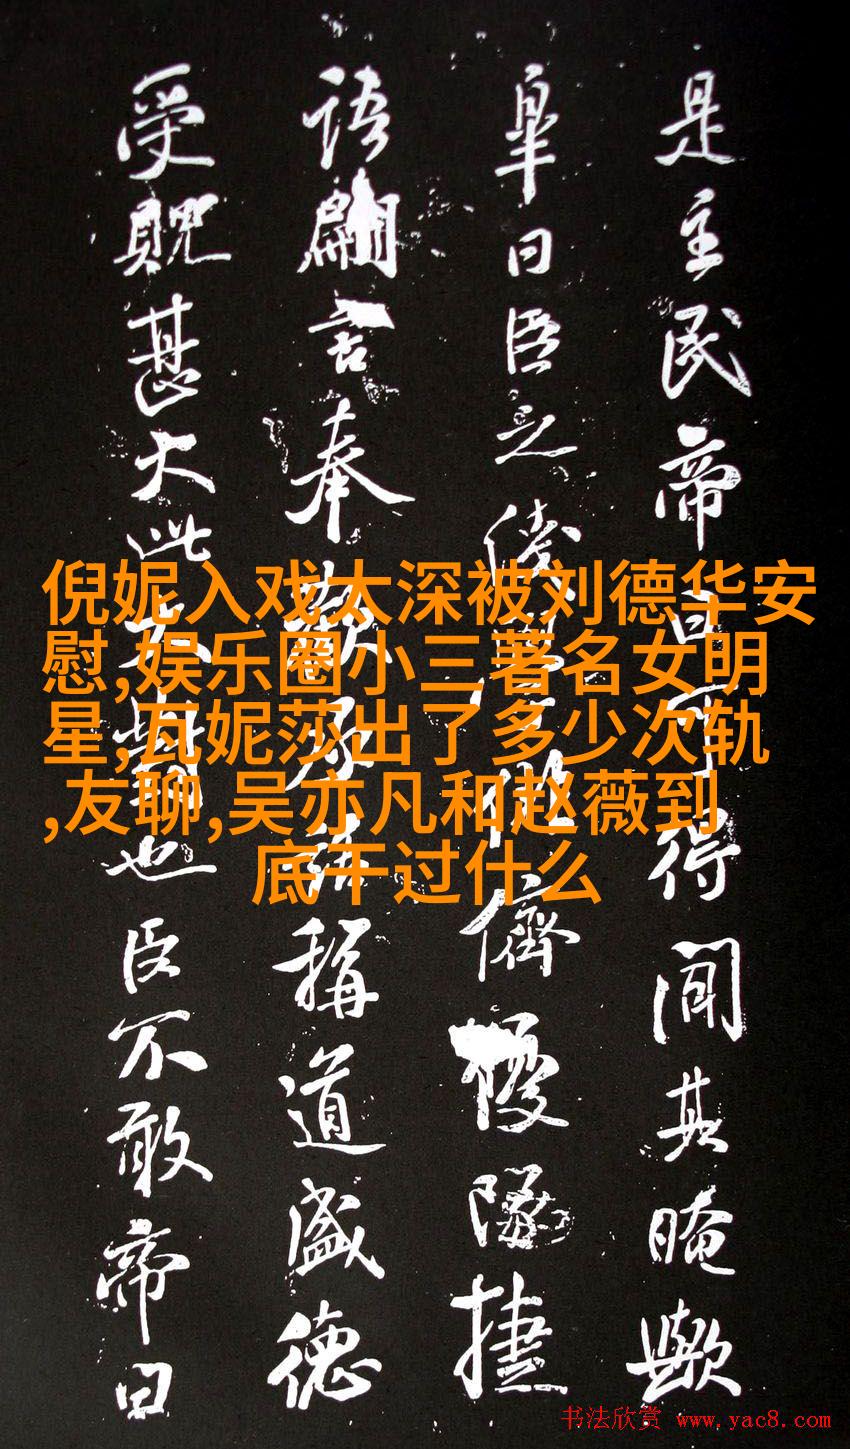 是主民帝曰可得聞其晻歟
皋曰臣之儕捷
语言奉歡承稱道盛德
受貺甚大也臣不敢帝曰
倪妮入戏太深被刘德华安
慰,娱乐圈小三著名女明
星,瓦妮莎出了多少次轨
,友聊,吴亦凡和赵薇到
底干过什么
书法欣赏 www.yac8.com